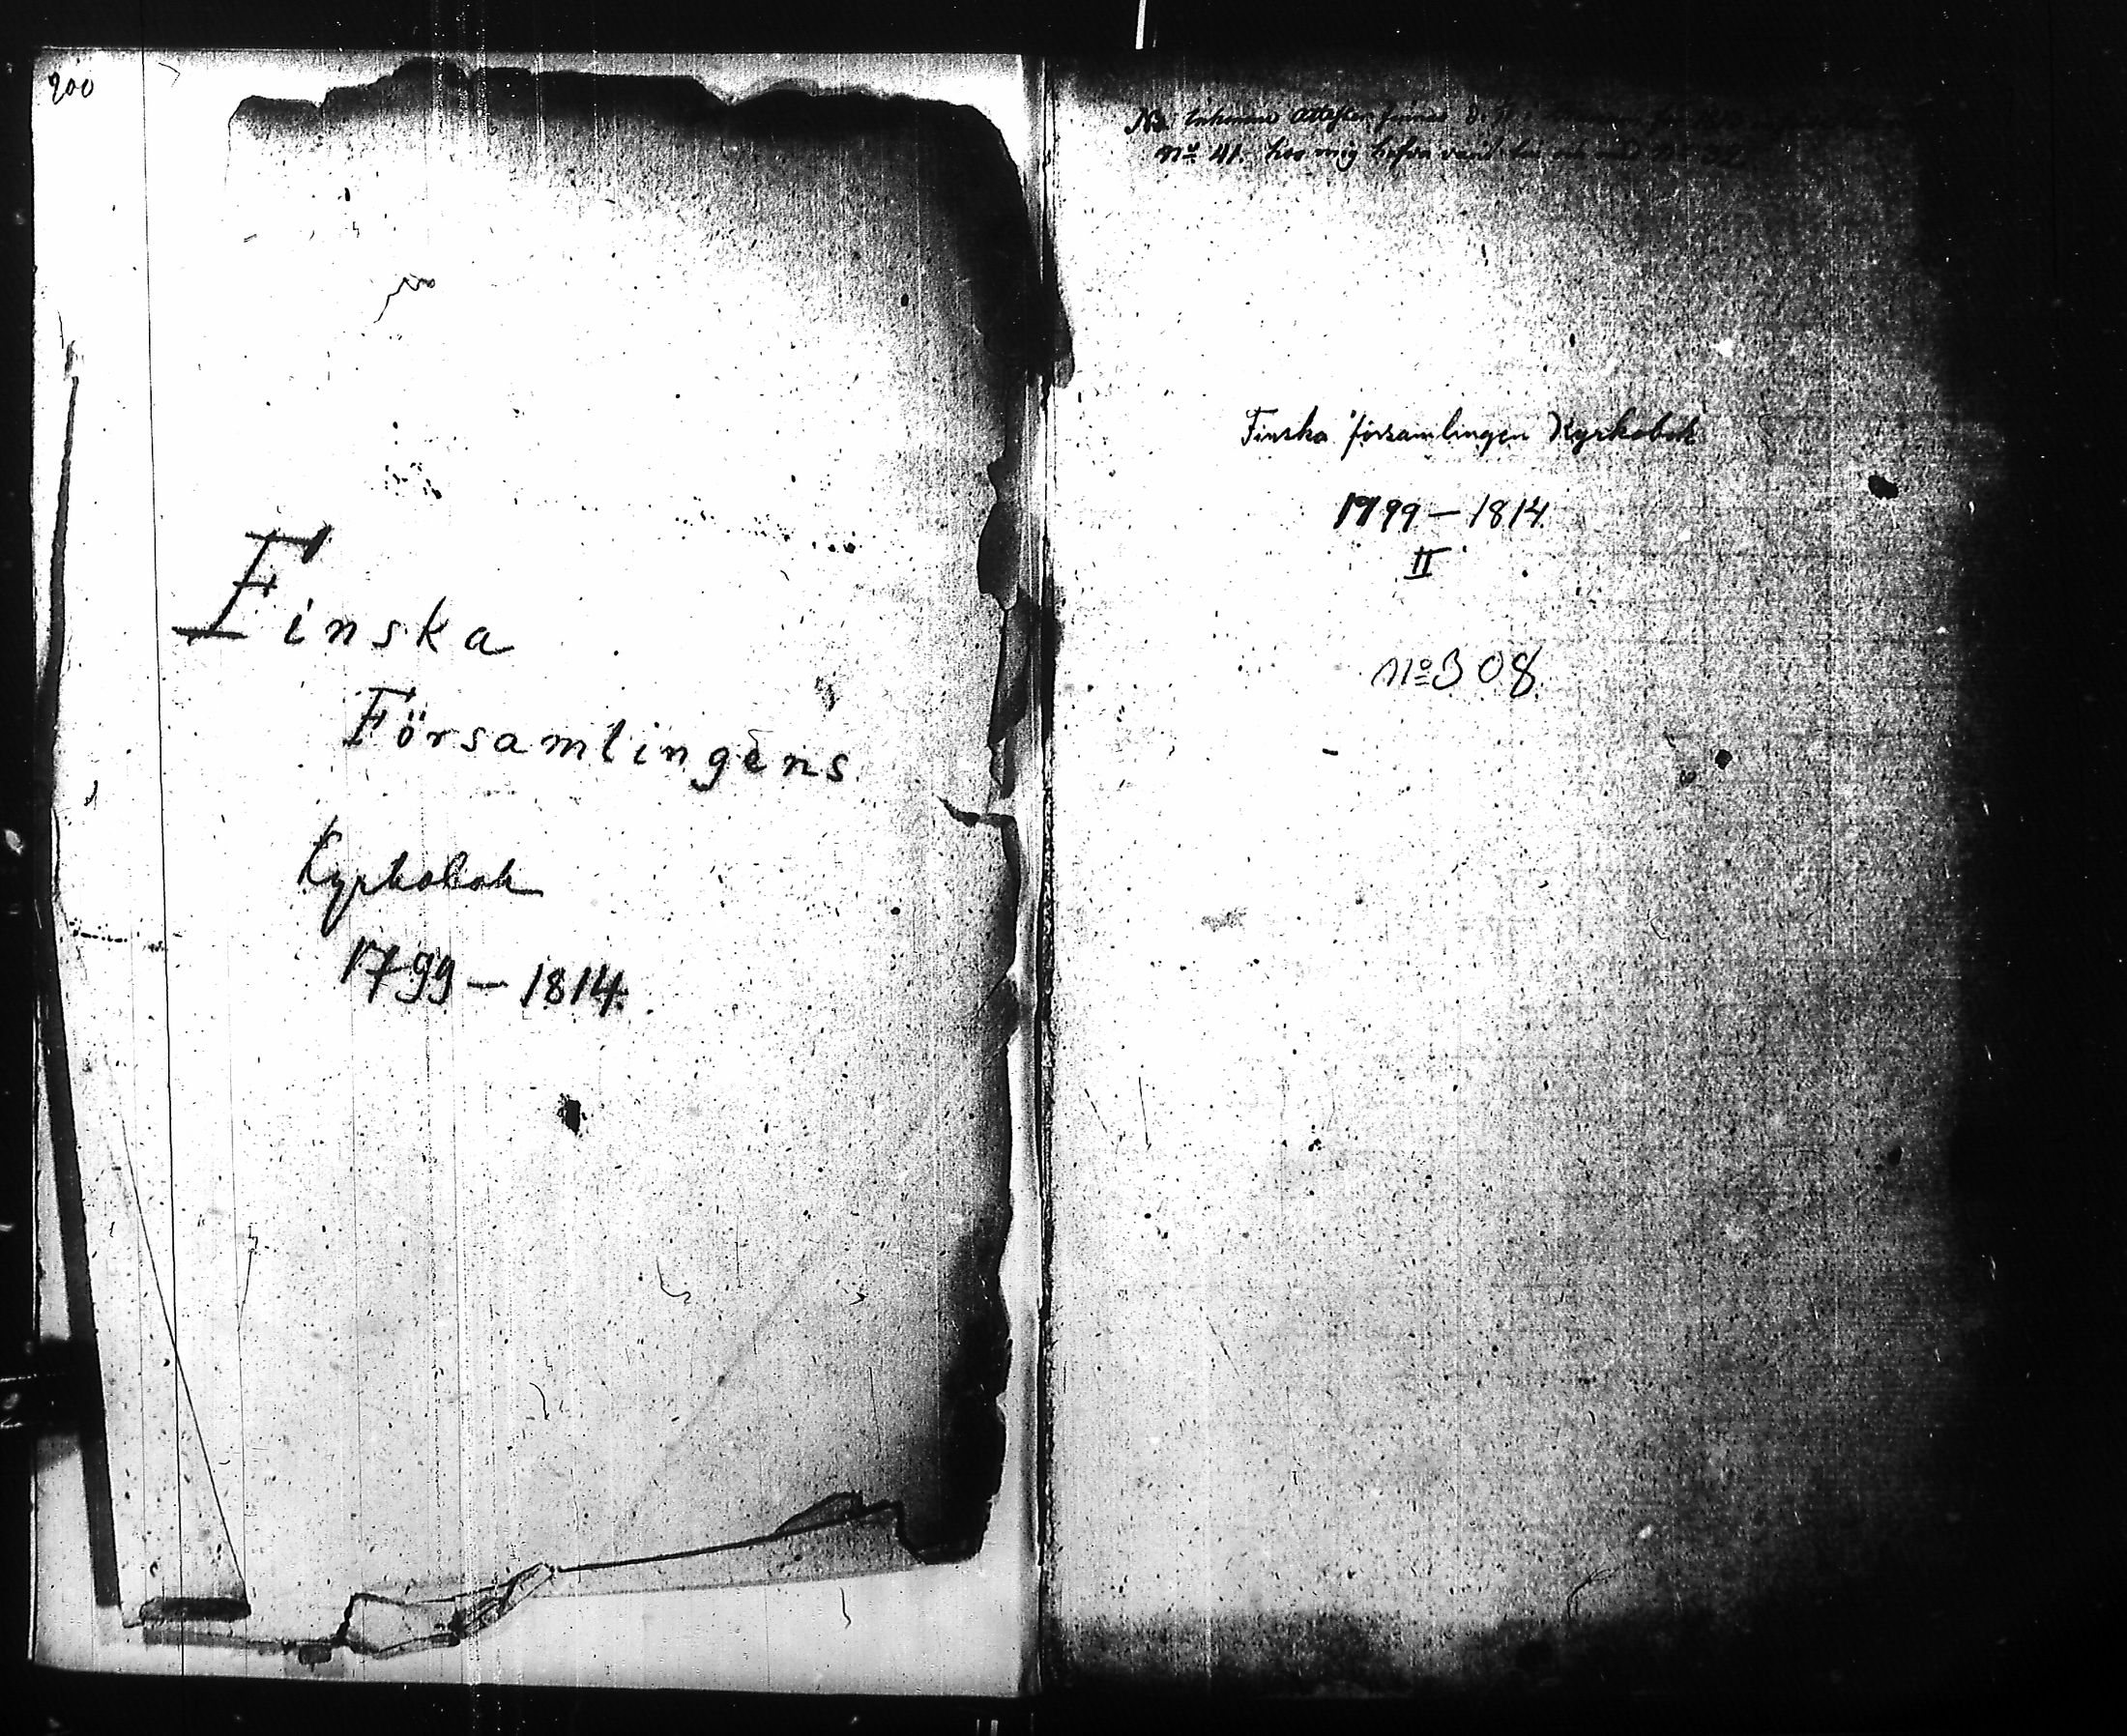 200
Finska
Församlingens
Kyrkobok
1799 – 1814.
Attester finnas
No 41. hos mig
Finska församlingen Kyrkobok
1799 – 1814.
II
No 308.